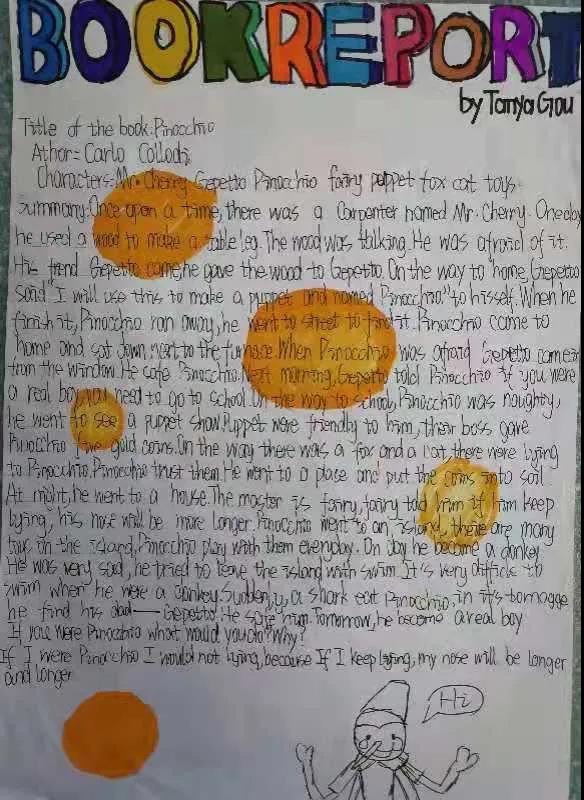 BOOKREPORT
by Tanya Gou
Title of the book: Pinocchio
Athor: Carlo Collodi
Characters: Mr. Cherry Gepetto Pinocchio fairy puppet fox cat toys.
Summary: Once upon a time, there was a Carpenter named Mr. Cherry. One day
he used a wood to make a table leg. The wood was talking. He was afraid of it.
His frend Gepetto came, he gave the wood to Gepetto. On the way to home, Gepetto
said "I will use this to make a puppet and named Pinocchio" to hisself. When he
finish it, Pinocchio ran away, he went to street to find it. Pinocchio come to
home and sat down next to the furnace. When Pinocchio was afraid Gepetto comes
from the window. He safe Pinocchio. Next morning, Gepetto told Pinocchio if you were
a real boy, you need to go to school. On the way to school, Pinocchio was naughty,
he went to see a puppet show. Puppet were friendly to him, their boss gave
Pinocchio five gold coins. On the way there was a fox and a cat, there were lying
to Pinocchio. Pinocchio trust them. He went to a place and put the coins into soil.
At night, he went to a house. The master is fairy, fairy told him if him keep
lying, his nose will be more longer. Pinocchio went to an island, there are many
toys on the island, Pinocchio play with them everyday. On day he become a donkey.
He was very sad, he tried to leave the island with swim. It's very difficle to
swim when he were a donkey. Suddenly, a shark eat Pinocchio, in it's tomagge
he find his dad — Gepetto. He safe him. Tomorrow, he become a real boy
If you were Pinocchio what would you do? Why?
If I were Pinocchio I would not lying, because If I keep lying, my nose will be longer
and longer
Hi